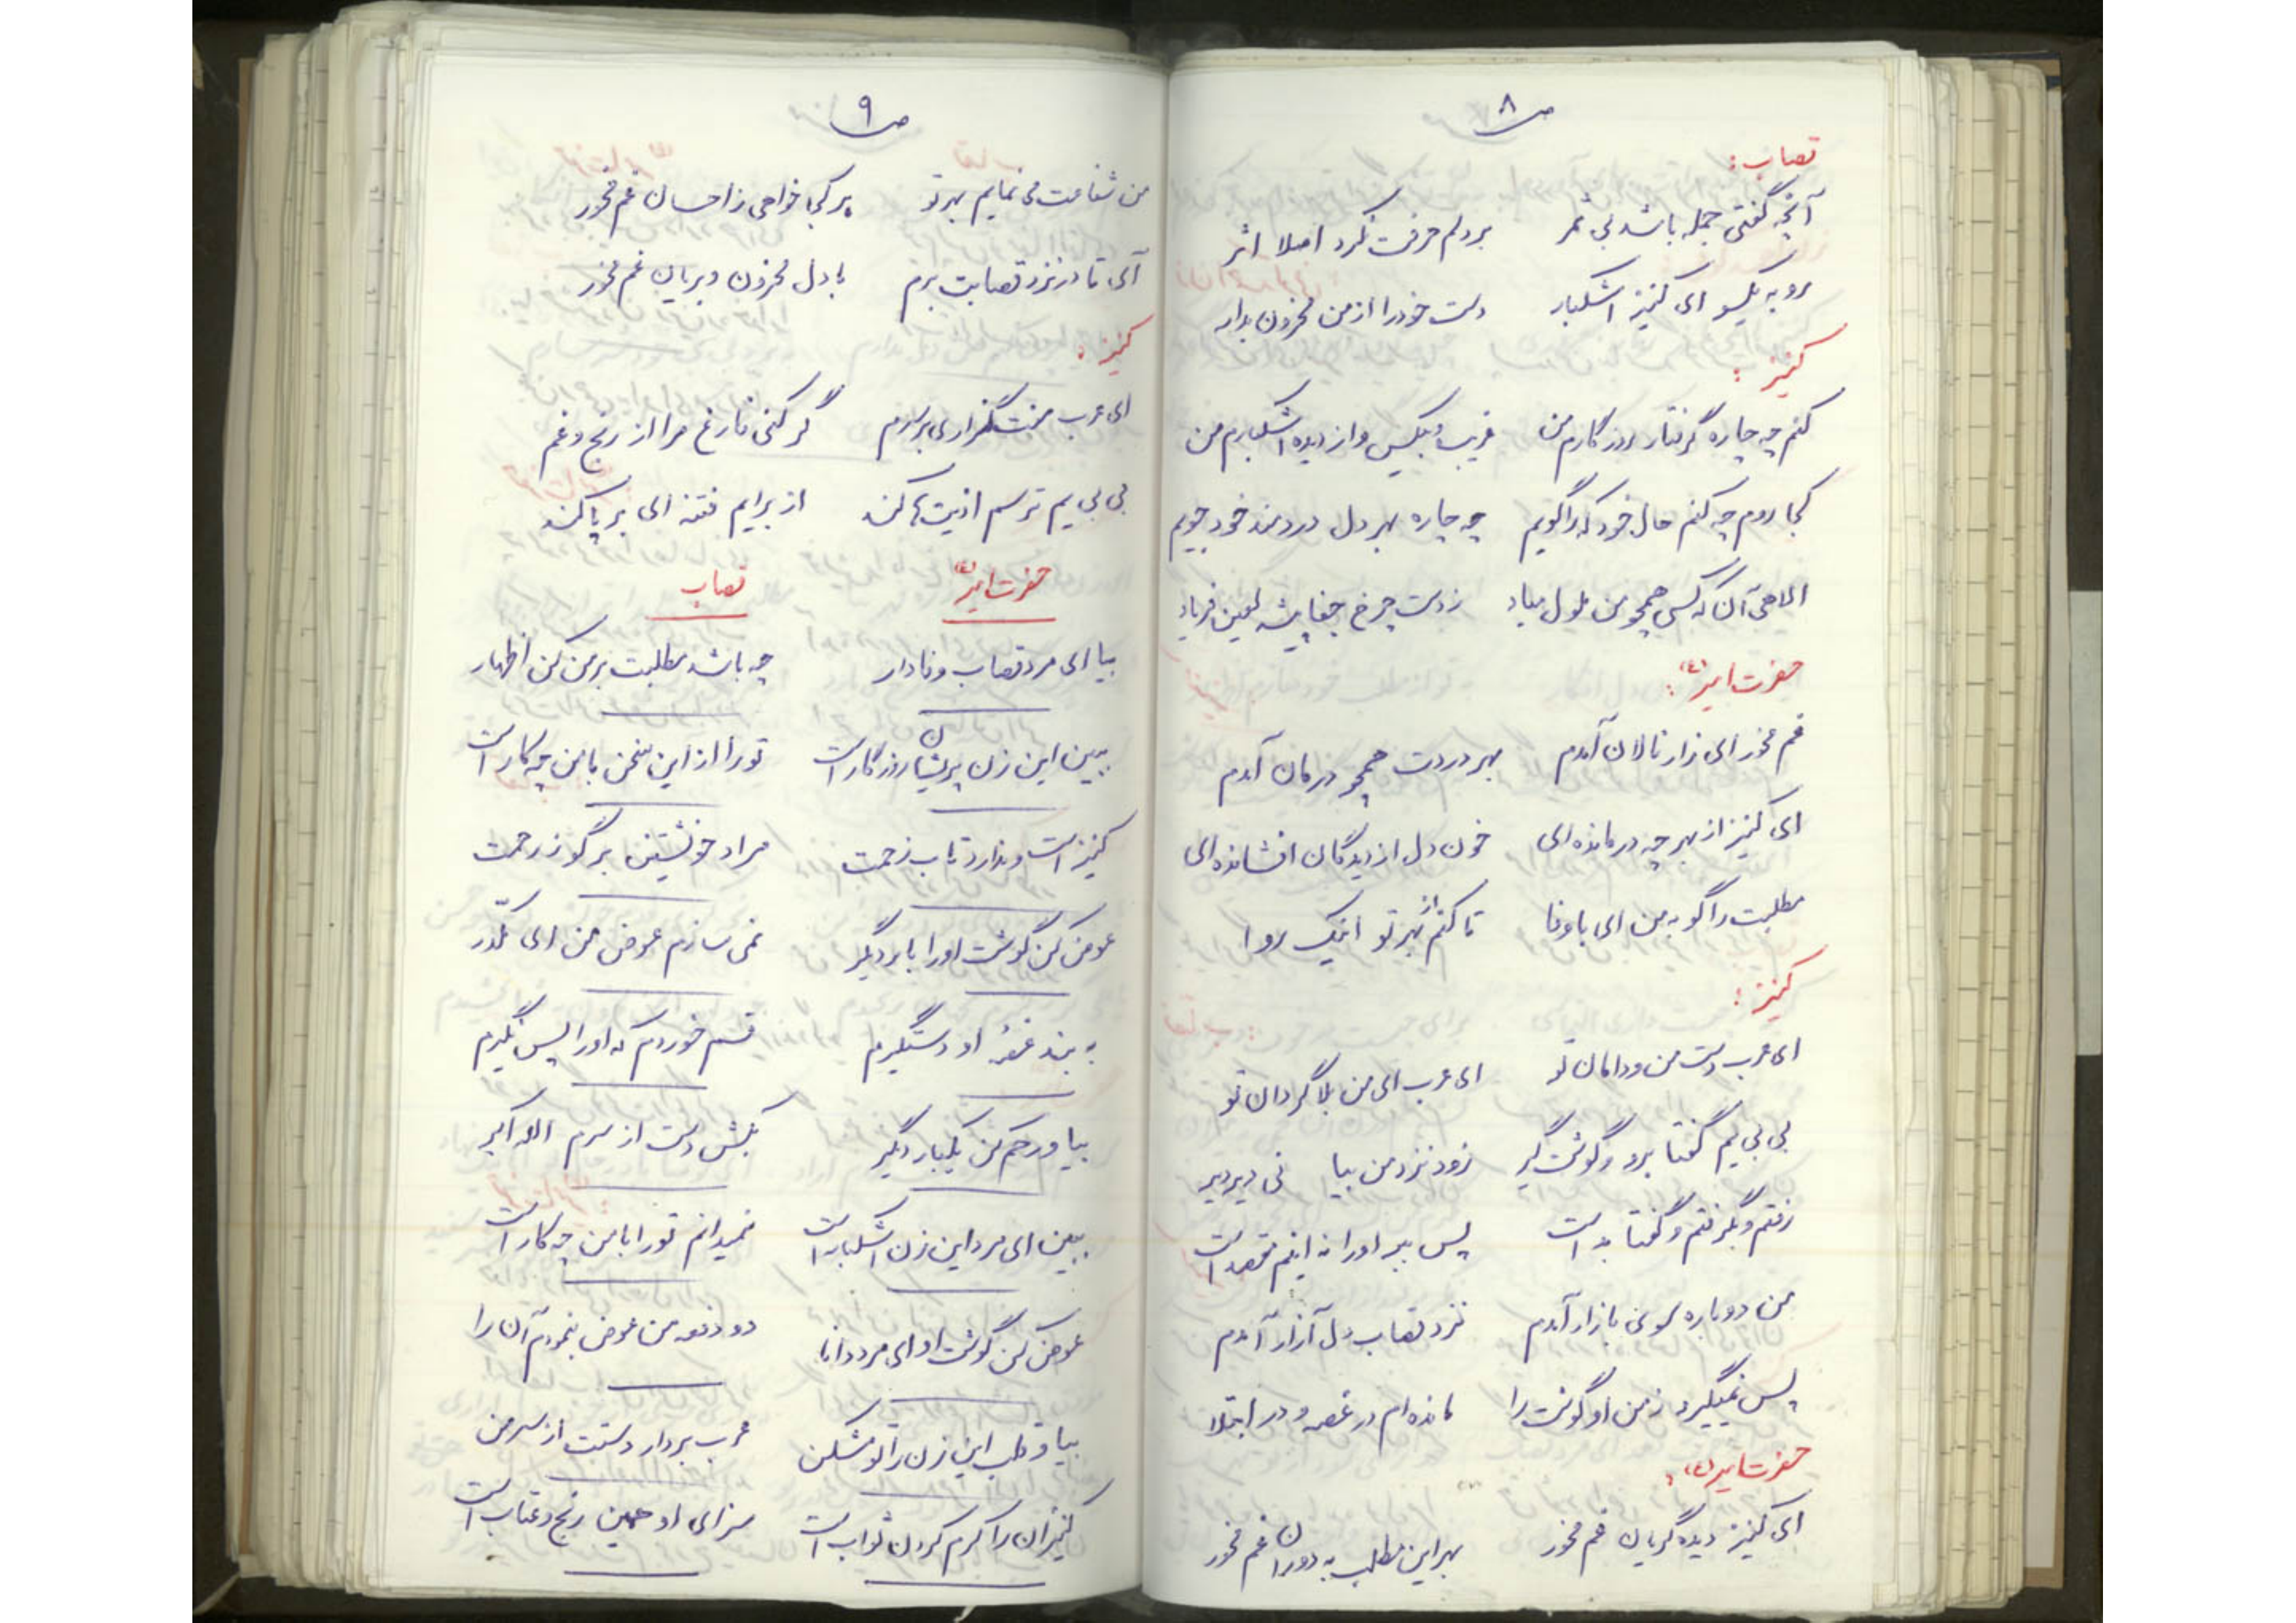 ص ۸
قصاب:
آنچه گفتی جمله باشد بی ثمر بر دلم حرفت نکرد اصلا اثر
رو به یکسو ای کنیز اشکبار دست خود را از من محزون بدار
کنیز:
کنم چه چاره گرفتار روزگارم من غریب و بیکس و از دیده اشکبارم من
کجا روم چه کنم حال خود که را گویم چه چاره بهر دل دردمند خود جویم
الاهی آن که کسی همچو من ملول مباد ز دست چرخ جفا پیشه لعین فریاد
حضرت امیر (ع):
غم مخور ای زار نالان آمدم بهر دردت همچو درمان آمدم
ای کنیز از بهر چه درمانده ای خون دل از دیدگان افشانده ای
مطلبت را گو به من ای با وفا تا کنم از بهر تو اینک روا
کنیز:
ای عرب دست من و دامان تو ای عرب ای من بلا گردان تو
بی بی یم گفتا برو گوشت گیر زود نزد من بیا نی دیر دیر
رفتم و بگرفتم و گفتا بد است پس ببر او را نه اینم مقصد است
من دوباره سوی بازار آمدم نزد قصاب دل آزار آمدم
پس نمیگیرد ز من او گوشت را مانده ام در غصه و در ابتلا
حضرت امیر (ع):
ای کنیز دیده گریان غم مخور بهر این مطلب به دوران غم مخور
ص ۹
من شفاعت می نمایم بهر تو هر کجا خواهی ز احسان غم مخور
آی تا در نزد قصابت برم با دل محزون و بریان غم مخور
کنیز:
ای عرب منت گذاری بر سرم گر کنی فارغ مرا از رنج و غم
بی بی یم ترسم اذیت ها کند از برایم فتنه ای بر پا کند
حضرت امیر (ع) قصاب
بیا ای مرد قصاب وفادار چه باشد مطلبت بر من کن اظهار
ببین این زن پریشان روزگار است تو را از این سخن با من چه کار است
کنیز است و ندارد تاب زحمت مراد خویشتن بر گو ز رحمت
عوض کن گوشت او را بار دیگر نمی سازم عوض من ای مکدر
به بند غصه او دستگیرم قسم خوردم که او را پس نگیرم
بیا و رحم کن یکبار دیگر بکش دست از سرم الله اکبر
ببین ای مرد این زن اشکبار است نمیدانم تو را با من چه کار است
عوض کن گوشت او ای مرد دانا دو دفعه من عوض بنمودم آن را
بیا و قلب این زن را تو مشکن عرب بردار دستت از سر من
کنیزان را کرم کردن ثواب است سزای او همین رنج و عتاب است